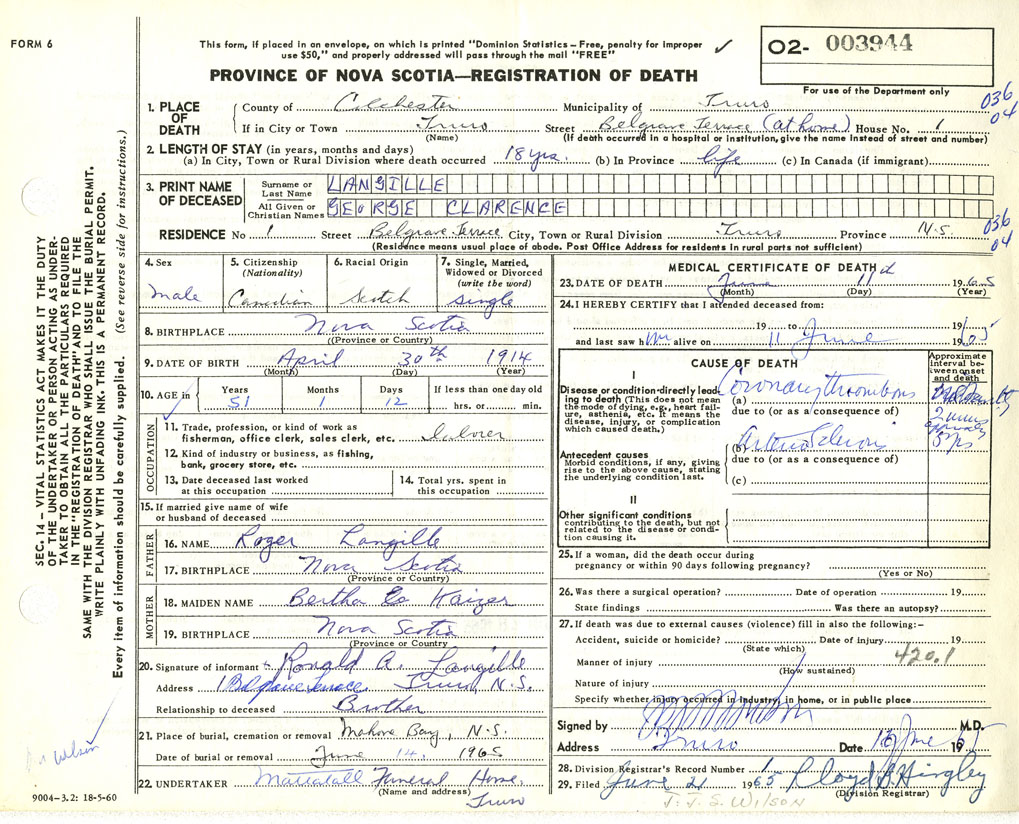 FORM 6
This form, if placed in an envelope, on which is printed "Dominion Statistics – Free, penalty for improper
use $50," and properly addressed will pass through the mail "FREE"
✓
O2- 003944
For use of the Department only
PROVINCE OF NOVA SCOTIA—REGISTRATION OF DEATH
036
04
1. PLACE OF DEATH
County of Colchester Municipality of Truro
If in City or Town Truro Street Belgrave Terrace (at home) House No. 1
(Name) (If death occurred in a hospital or institution, give the name instead of street and number)
2. LENGTH OF STAY (in years, months and days)
(a) In City, Town or Rural Division where death occurred 18 yrs. (b) In Province life (c) In Canada (if immigrant)
3. PRINT NAME OF DECEASED
Surname or Last Name LANGILLE
All Given or Christian Names GEORGE CLARENCE
RESIDENCE No 1 Street Belgrave Terrace City, Town or Rural Division Truro Province N.S.
(Residence means usual place of abode. Post Office Address for residents in rural parts not sufficient)
036
04
4. Sex
male
5. Citizenship
(Nationality)
Canadian
6. Racial Origin
Scotch
7. Single, Married,
Widowed or Divorced
(write the word)
single
8. BIRTHPLACE Nova Scotia
((Province or Country)
9. DATE OF BIRTH April 30th 1914
(Month) (Day) (Year)
10. AGE in
Years Months Days If less than one day old
51 1 12 hrs. or min.
OCCUPATION
11. Trade, profession, or kind of work as
fisherman, office clerk, sales clerk, etc. Laborer
12. Kind of industry or business, as fishing,
bank, grocery store, etc.
13. Date deceased last worked
at this occupation
14. Total yrs. spent in
this occupation
15. If married give name of wife
or husband of deceased
FATHER
16. NAME Roger Langille
17. BIRTHPLACE Nova Scotia
(Province or Country)
MOTHER
18. MAIDEN NAME Bertha Kaizer
19. BIRTHPLACE Nova Scotia
(Province or Country)
20. Signature of informant Ronald A. Langille
Address 1 Belgrave Terrace Truro, N.S.
Relationship to deceased Brother
21. Place of burial, cremation or removal Mahone Bay, N.S.
Date of burial or removal June 14, 1965
22. UNDERTAKER Mattatall Funeral Home,
(Name and address) Truro
9004–3.2: 18-5-60
MEDICAL CERTIFICATE OF DEATH
23. DATE OF DEATH 11 1965
(Month) (Day) (Year)
24. I HEREBY CERTIFY that I attended deceased from:
19 to 19
and last saw him alive on 11 June 1965
CAUSE OF DEATH
Approximate
interval be-
tween onset
and death
I
Disease or condition directly lead-
ing to death (This does not mean
the mode of dying, e.g., heart fail-
ure, asthenia, etc. It means the
disease, injury, or complication
which caused death.)
(a) Coronary thrombosis
due to (or as a consequence of)
(b)
due to (or as a consequence of)
Antecedent causes
Morbid conditions, if any, giving
rise to the above cause, stating
the underlying condition last.
(c)
II
Other significant conditions
contributing to the death, but not
related to the disease or condi-
tion causing it.
25. If a woman, did the death occur during
pregnancy or within 90 days following pregnancy?
(Yes or No)
26. Was there a surgical operation? Date of operation 19
State findings Was there an autopsy?
27. If death was due to external causes (violence) fill in also the following:–
Accident, suicide or homicide? Date of injury 19
(State which) 420.1
Manner of injury
(How sustained)
Nature of injury
Specify whether injury occurred in industry, in home, or in public place
Signed by M.D.
Address Truro Date June 19
28. Division Registrar's Record Number 1
29. Filed June 21 1965 Lloyd Hingley
(Division Registrar)
J. J. S. WILSON
SEC. 14 – VITAL STATISTICS ACT MAKES IT THE DUTY
OF THE UNDERTAKER OR PERSON ACTING AS UNDER-
TAKER TO OBTAIN ALL THE PARTICULARS REQUIRED
IN THE "REGISTRATION OF DEATH" AND TO FILE THE
SAME WITH THE DIVISION REGISTRAR WHO SHALL ISSUE THE BURIAL PERMIT.
WRITE PLAINLY WITH UNFADING INK. THIS IS A PERMANENT RECORD.
Every item of information should be carefully supplied. (See reverse side for instructions.)
Wilson